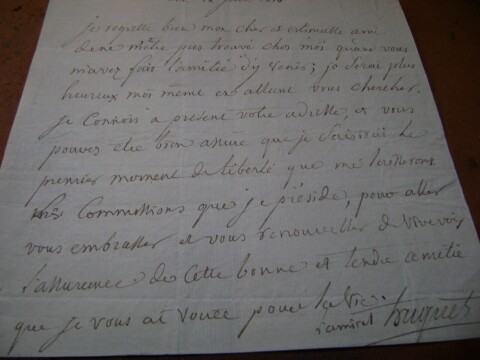 je regrette bien mon cher et estimable ami
de ne m'être pas trouvé chés moi quand vous
m'avez fait l'amitié d'y venir; je serai plus
heureux moi même en allant vous chercher.
je Connois à présent votre adresse, et vous
pouvez être bien assuré que je saisirai le
premier moment de liberté que me laisseront
les Commissions que je préside, pour aller
vous embrasser et vous renouveller de vive voix
l'assurance de cette bonne et tendre amitié
que je vous ai vouée pour la vie.
l'amiral truguet